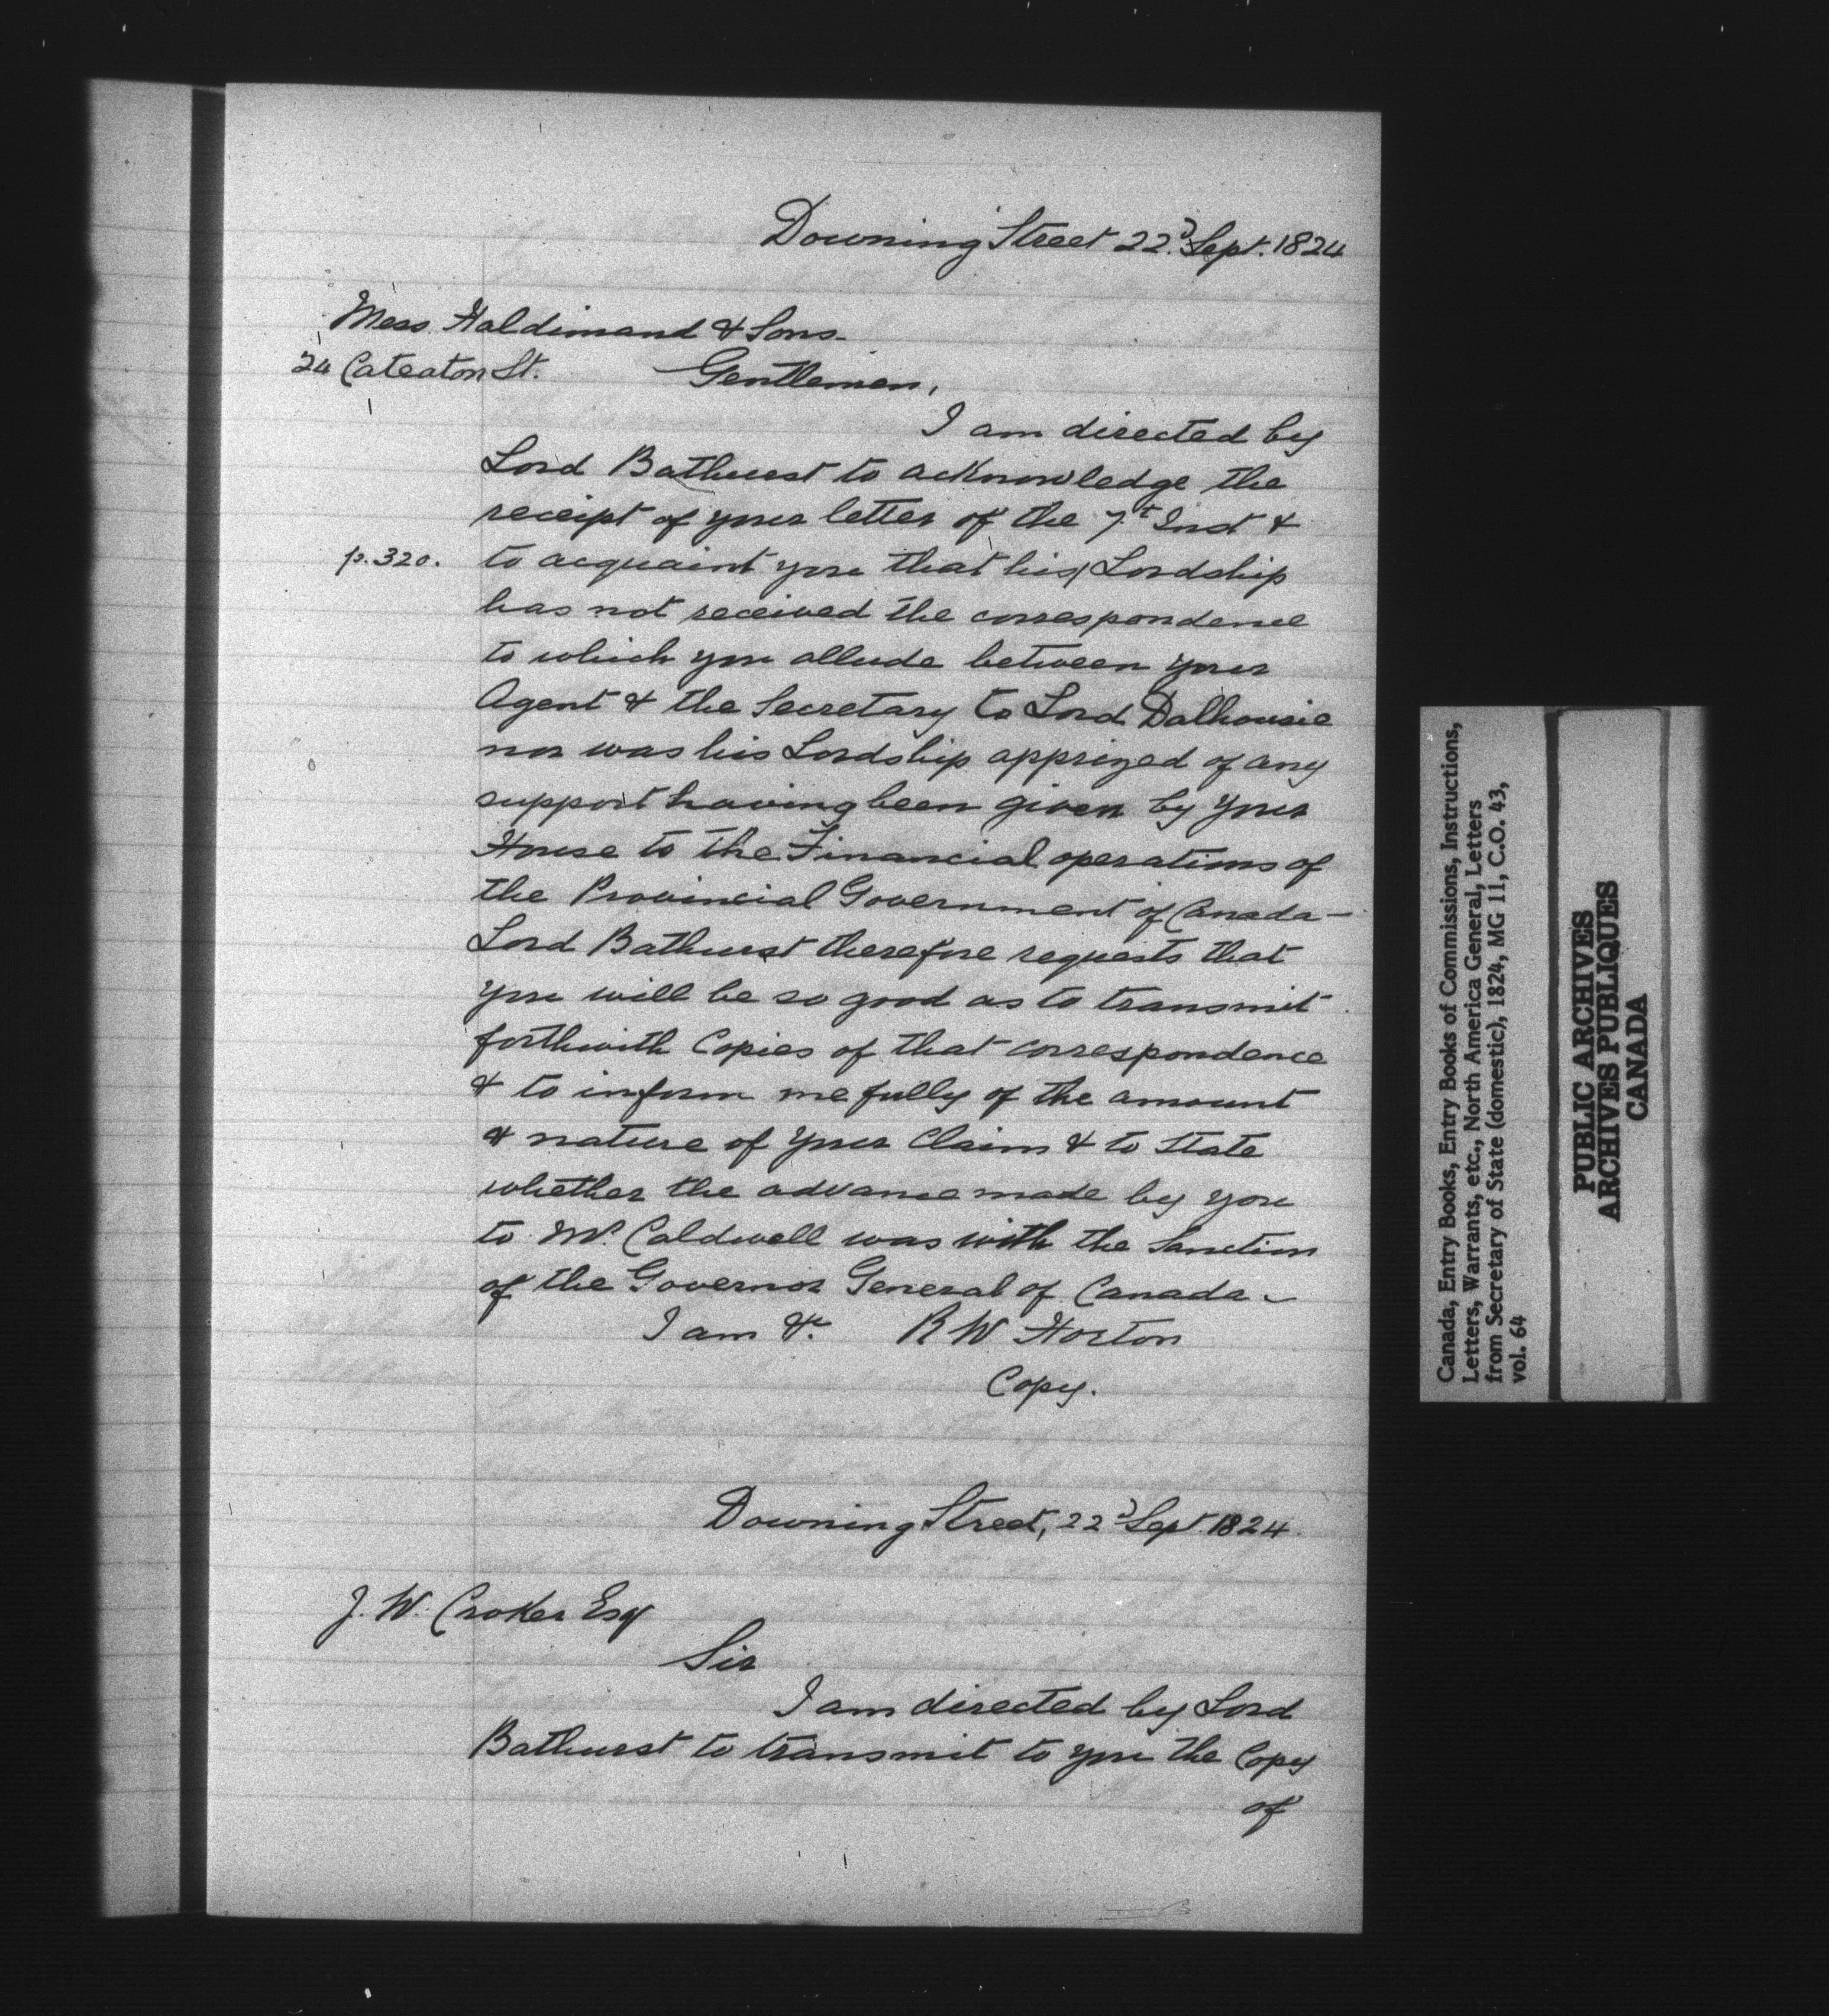 Downing Street 22d Sept. 1824
Mess. Haldimand & Sons.
24 Cateaton St. Gentlemen,
I am directed by
Lord Bathurst to acknowledge the
receipt of your letter of the 7t Inst &
p. 320. to acquaint you that his Lordship
has not received the correspondence
to which you allude between your
Agent & the Secretary to Lord Dalhousie
nor was his Lordship apprized of any
support having been given by your
House to the Financial operations of
the Provincial Government of Canada—
Lord Bathurst therefore requests that
you will be so good as to transmit
forthwith Copies of that correspondence
& to inform me fully of the amount
& nature of your Claim & to State
whether the advance made by you
to Mr. Caldwell was with the Sanction
of the Governor General of Canada—
I am &c R W Horton
Copy.
Downing Street, 22d Sept. 1824.
J. W. Croker Esq
Sir
I am directed by Lord
Bathurst to transmit to you the Copy
of
Canada, Entry Books, Entry Books of Commissions, Instructions,
Letters, Warrants, etc., North America General, Letters
from Secretary of State (domestic), 1824, MG 11, C.O. 43,
vol. 64
PUBLIC ARCHIVES
ARCHIVES PUBLIQUES
CANADA